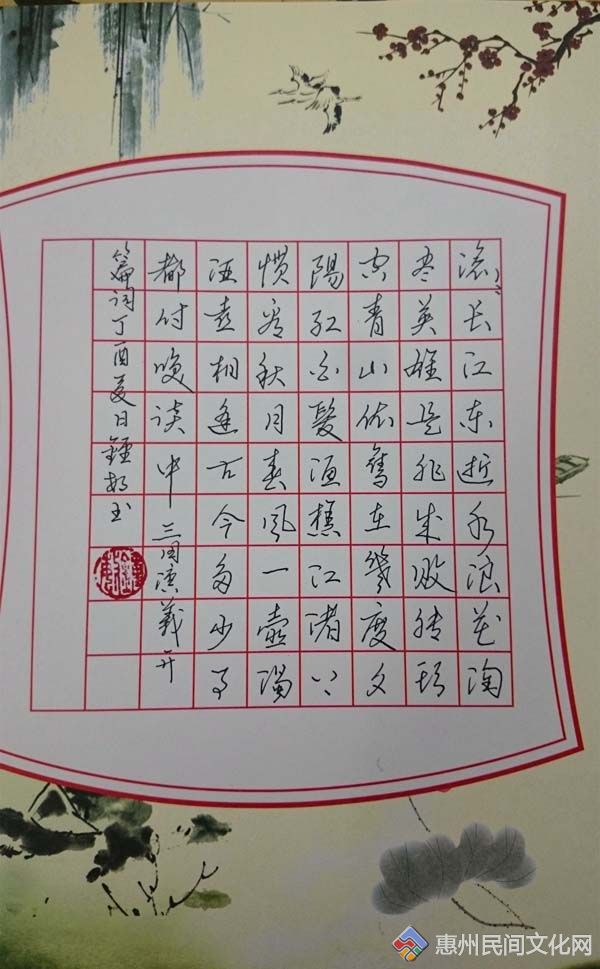 滚〻长江东逝水浪花淘
尽英雄是非成败转头
空青山依舊在幾度夕
陽红白髮渔樵江渚上
惯看秋月春風一壶濁
酒喜相逢古今多少事
都付笑谈中 三国演义开
篇词丁酉夏日鍾
惠州民间文化网